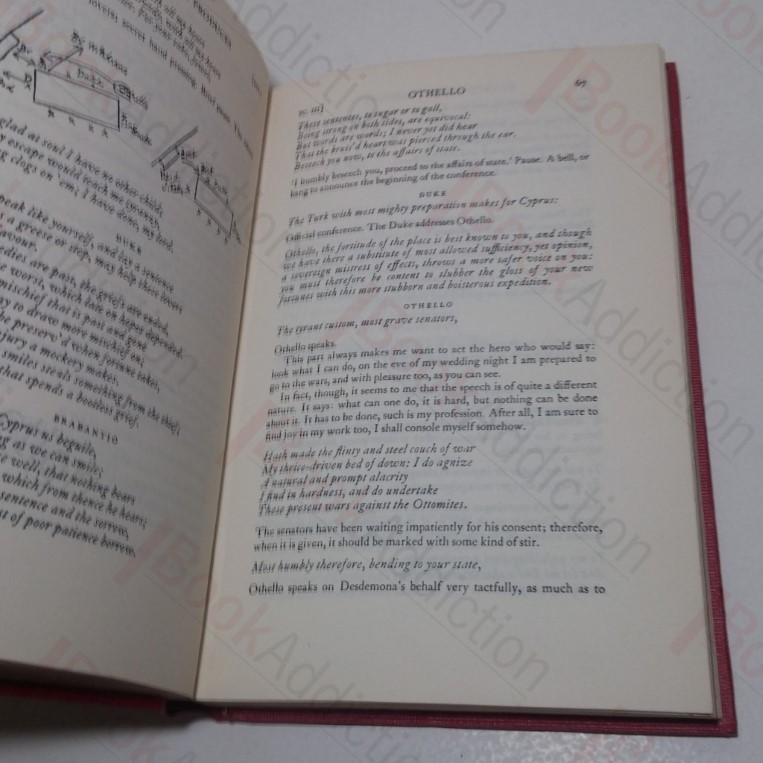 PRODUCES
glad at soul I have no other child;
escape would teach me tyranny,
clogs on 'em; I have done, my lord.
DUKE
speak like yourself, and lay a sentence
a greese or step, may help these lovers
favour.
remedies are past, the griefs are ended,
worst, which late on hopes depended.
mischief that is past and gone
to draw more mischief on;
be preserv'd when fortune takes,
injury a mockery makes.
smiles steals something from the thief;
that spends a bootless grief.
BRABANTIO
Cyprus us beguile,
long as we can smile;
well, that nothing bears
which from thence he hears;
sentence and the sorrow,
of poor patience borrow.
SC. III]
OTHELLO
67
These sentences, to sugar or to gall,
Being strong on both sides, are equivocal:
But words are words; I never yet did hear
That the bruis'd heart was pierced through the ear.
Beseech you now, to the affairs of state.
'I humbly beseech you, proceed to the affairs of state.' Pause. A bell, or
kang to announce the beginning of the conference.
DUKE
The Turk with most mighty preparation makes for Cyprus:
Official conference. The Duke addresses Othello.
Othello, the fortitude of the place is best known to you, and though
we have there a substitute of most allowed sufficiency, yet opinion,
a sovereign mistress of effects, throws a more safer voice on you:
you must therefore be content to slubber the gloss of your new
fortunes with this more stubborn and boisterous expedition.
OTHELLO
The tyrant custom, most grave senators,
Othello speaks.
This part always makes me want to act the hero who would say:
look what I can do, on the eve of my wedding night I am prepared to
go to the wars, and with pleasure too, as you can see.
In fact, though, it seems to me that the speech is of quite a different
nature. It says: what can one do, it is hard, but nothing can be done
about it. It has to be done, such is my profession. After all, I am sure to
find joy in my work too, I shall console myself somehow.
Hath made the flinty and steel couch of war
My thrice-driven bed of down: I do agnize
A natural and prompt alacrity
I find in hardness, and do undertake
These present wars against the Ottomites.
The senators have been waiting impatiently for his consent; therefore,
when it is given, it should be marked with some kind of stir.
Most humbly therefore, bending to your state,
Othello speaks on Desdemona's behalf very tactfully, as much as to
BookAddiction